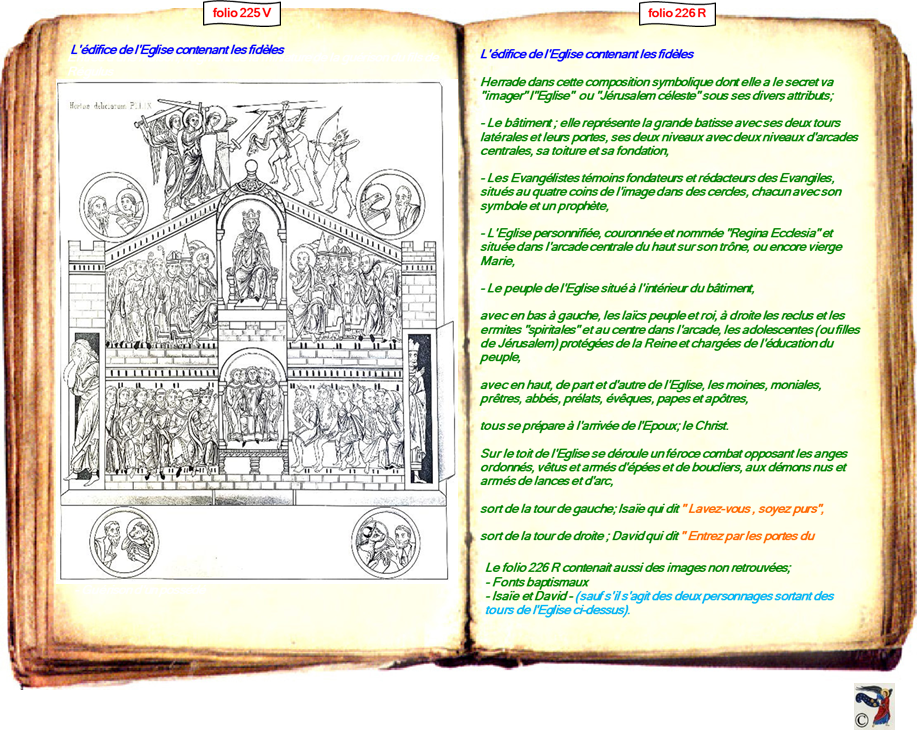 folio 225 V
L'édifice de l'Eglise contenant les fidèles
Hortus deliciarum Pl. IX
folio 226 R
L'édifice de l'Eglise contenant les fidèles
Herrade dans cette composition symbolique dont elle a le secret va
"imager" l"Eglise" ou "Jérusalem céleste" sous ses divers attributs;
- Le bâtiment ; elle représente la grande batisse avec ses deux tours
latérales et leurs portes, ses deux niveaux avec deux niveaux d'arcades
centrales, sa toiture et sa fondation,
- Les Evangélistes témoins fondateurs et rédacteurs des Evangiles,
situés au quatre coins de l'image dans des cercles, chacun avec son
symbole et un prophète,
- L'Eglise personnifiée, couronnée et nommée "Regina Ecclesia" et
située dans l'arcade centrale du haut sur son trône, ou encore vierge
Marie,
- Le peuple de l'Eglise situé à l'intérieur du bâtiment,
avec en bas à gauche, les laïcs peuple et roi, à droite les reclus et les
ermites "spiritales" et au centre dans l'arcade, les adolescentes (ou filles
de Jérusalem) protégées de la Reine et chargées de l'éducation du
peuple,
avec en haut, de part et d'autre de l'Eglise, les moines, moniales,
prêtres, abbés, prélats, évêques, papes et apôtres,
tous se prépare à l'arrivée de l'Epoux; le Christ.
Sur le toit de l'Eglise se déroule un féroce combat opposant les anges
ordonnés, vêtus et armés d'épées et de boucliers, aux démons nus et
armés de lances et d'arc,
sort de la tour de gauche; Isaïe qui dit " Lavez-vous , soyez purs",
sort de la tour de droite ; David qui dit " Entrez par les portes du
Le folio 226 R contenait aussi des images non retrouvées;
- Fonts baptismaux
- Isaïe et David - (sauf s'il s'agit des deux personnages sortant des
tours de l'Eglise ci-dessus).
©